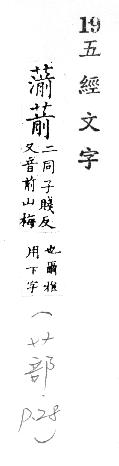 19五經文字
葥
二同子賤反
又音前山梅
也爾雅
用下字
(艹部 p.28)